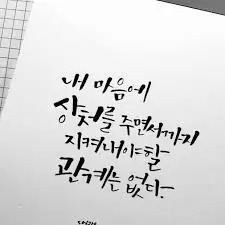 내 마음에
상처를 주면서까지
지켜내야할
관계는 없다.